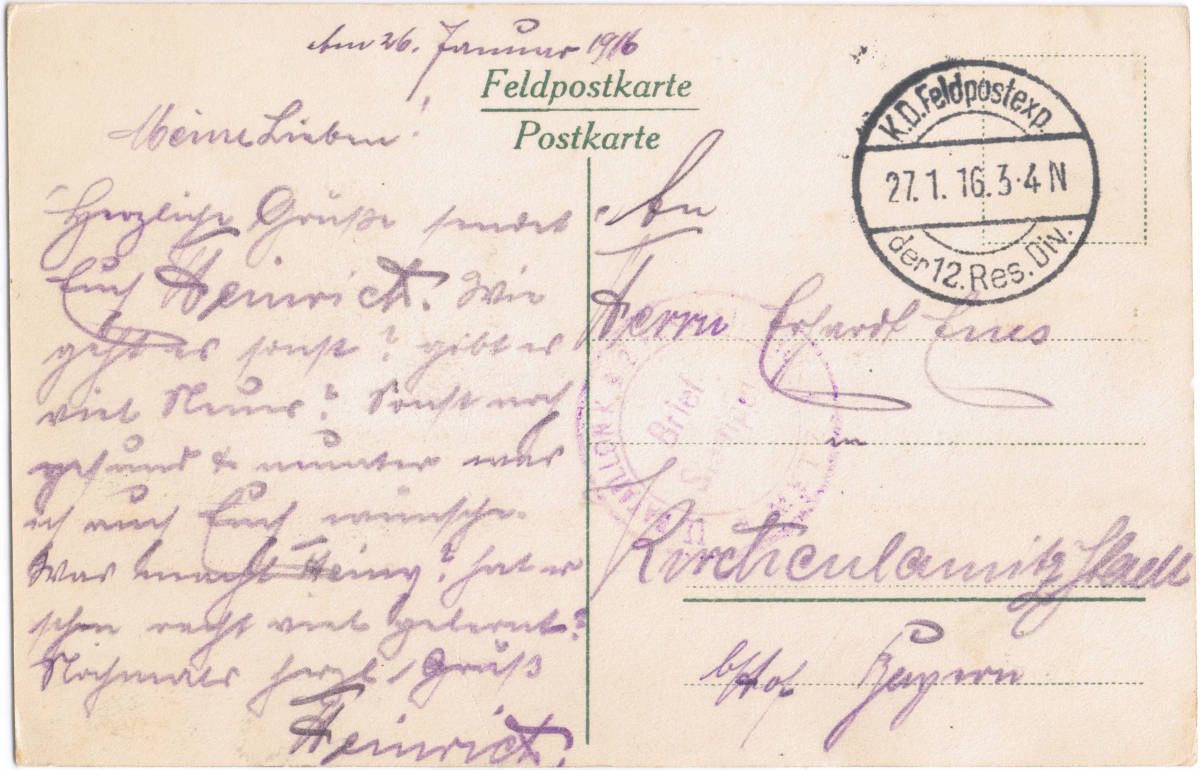 Am 26. Januar 1916
Feldpostkarte
Postkarte
Meine Lieben!
Herzliche Grüße sendet
Euch Heinrich. Wie
geht es sonst? gibt es
viel Neues? Sonst noch
gesund & munter was
ich auch Euch wünsche.
Was macht Heiny? hat er
schon recht viel gelernt?
Nochmals herzl. Grüß
Heinrich.
K.D. Feldpostexp.
27.1.16.3-4 N
der 12. Res. Div.
An
Herrn Erhardt
in
Kirchenlamitz Stadt
Bayern
Brief